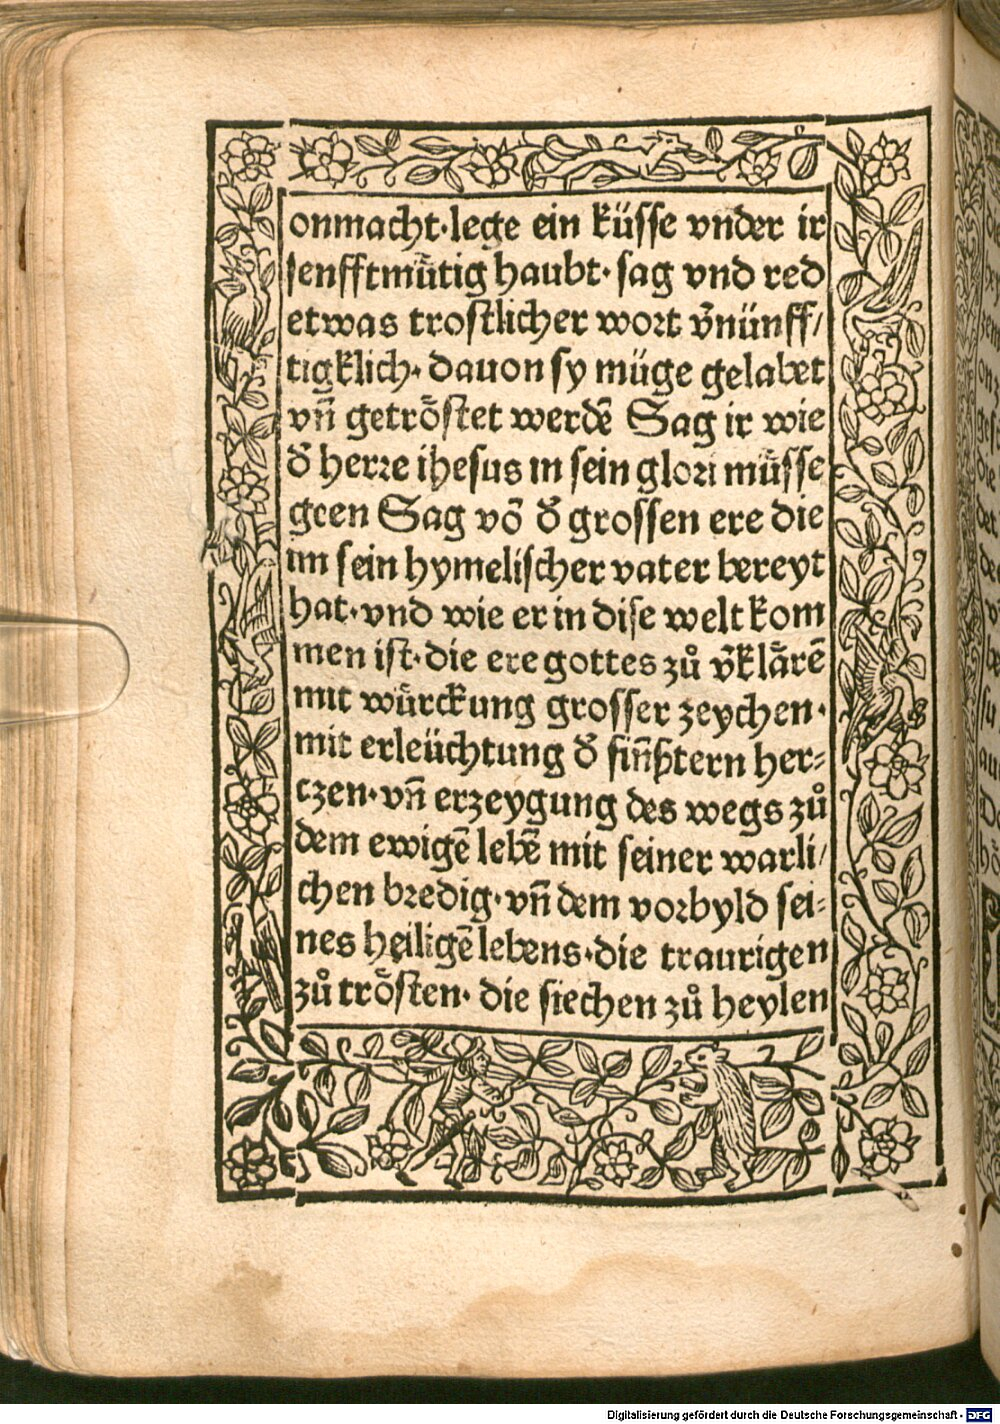 onmacht·lege ein küsse vnder ir
senfftmuͤtig haubt· sag vnd red
etwas trostlicher wort v̄nünff/
tigklich· dauon sy müge gelabet
vn̄ getroͤstet werdē Sag ir wie
d̄ herre ihesus in sein glori muͤsse
geen Sag vō d̄ grossen ere die
im sein hymelischer vater bereyt
hat·vnd wie er in dise welt kom
men ist·die ere gottes zů v̄klaͤrē
mit wuͤrckung grosser zeychen·
mit erleüchtung d̄ fin̄ßtern her-
czen·vn̄ erzeygung des wegs zů
dem ewigē lebē mit seiner warli/
chen bredig·vn̄ dem vorbyld sei-
nes heiligē lebens·die traurigen
zů troͤsten· die siechen zů heylen
Digitalisierung gefördert durch die Deutsche Forschungsgemeinschaft - DFG